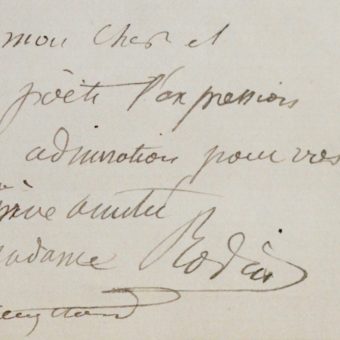 mon cher et
poète l'expression
admiration pour vos
amitié
Madame Rodin